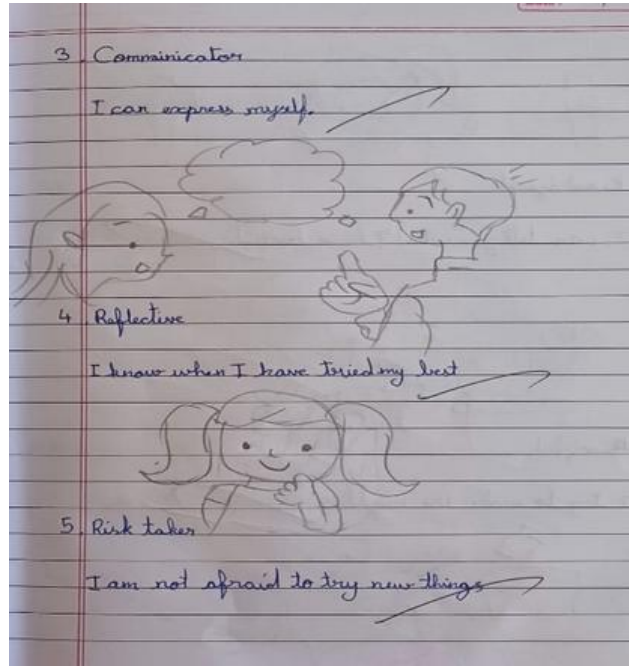 3 Comminicator
I can express myself.
4 Reflective
I know when I have tried my best
5 Risk taker
I am not afraid to try new things